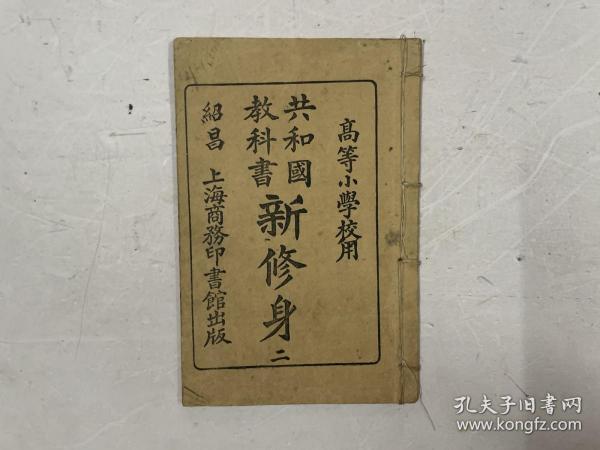 高等小學校用
共和國
教科書
新修身
二
紹昌
上海商務印書館出版
孔夫子旧书网
www.kongfz.com